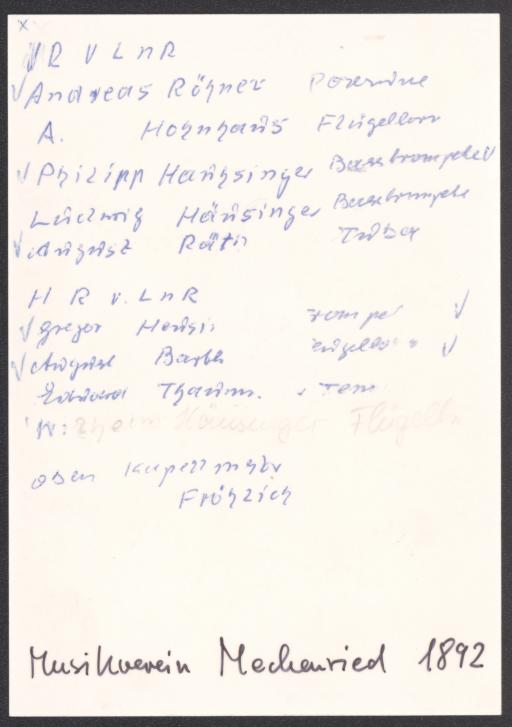 x
VR V L n R
✓ Andreas Röhner Posaune
A. Hornhaus Flügelhorn
✓ Philipp Häuhsinger Basstrompete ✓
Ludwig Häusinger Basstrompete
✓ August Räth Tuba
H R v. L n R
✓ Gregor ✓
✓ August Barth ✓
Eduard
Häusinger Flügelh.
oben Kapellmstr
Fröhlich
Musikverein Mechenried 1892